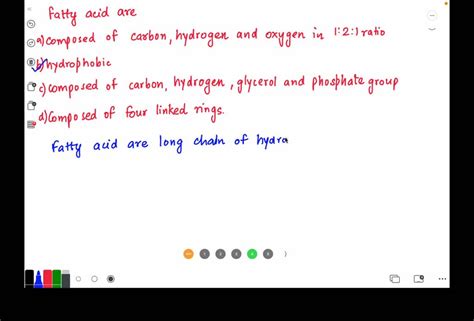 Fatty acid are
a) composed of carbon, hydrogen and oxygen in 1:2:1 ratio
b) hydrophobic
c) composed of carbon, hydrogen, glycerol and phosphate group
d) Composed of four linked rings.
Fatty acid are long chain of hydra